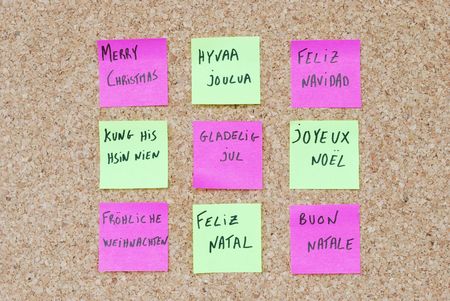 MERRY
CHRISTMAS
HYVAA
JOULUA
FELIZ
NAVIDAD
KUNG HIS
HSIN NIEN
GLADELIG
JUL
JOYEUX
NOËL
FRÖHLICHE
WEIHNACHTEN
FELIZ
NATAL
BUON
NATALE